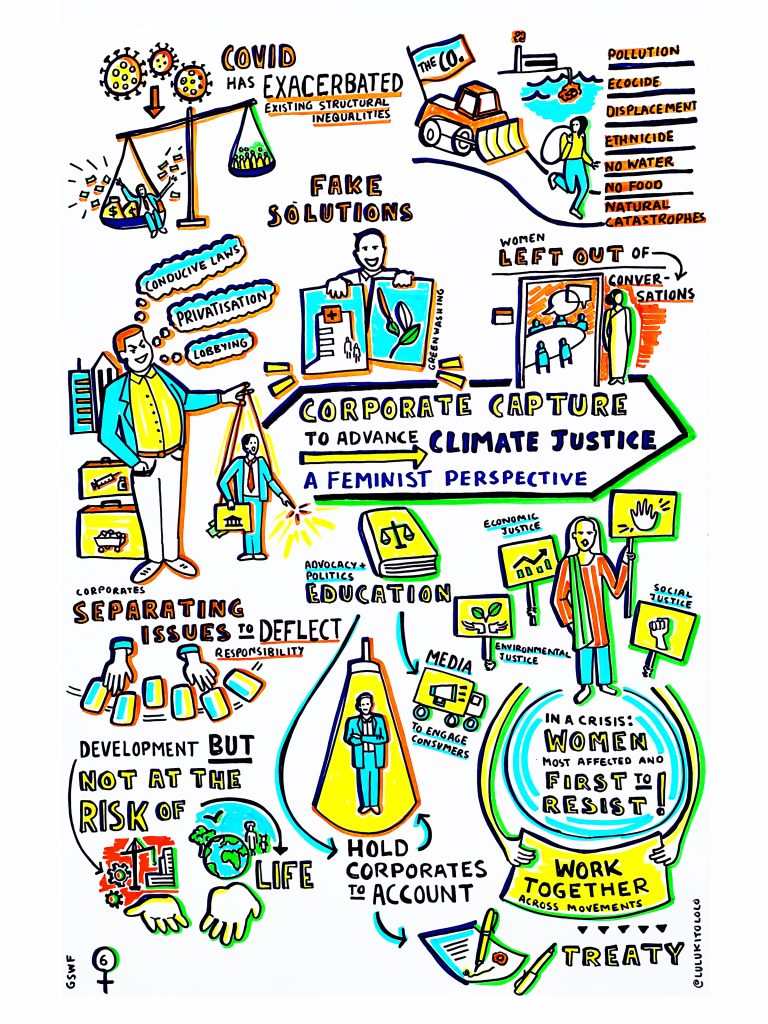 COVID
HAS EXACERBATED
EXISTING STRUCTURAL
INEQUALITIES
$ $
THE CO.
POLLUTION
ECOCIDE
DISPLACEMENT
ETHNICIDE
NO WATER
NO FOOD
NATURAL
CATASTROPHES
FAKE
SOLUTIONS
GREENWASHING
WOMEN
LEFT OUT OF
CONVER-
SATIONS
CONDUCIVE LAWS
PRIVATISATION
LOBBYING
CORPORATE CAPTURE
TO ADVANCE CLIMATE JUSTICE
A FEMINIST PERSPECTIVE
CORPORATES
SEPARATING
ISSUES TO DEFLECT
RESPONSIBILITY
ADVOCACY +
POLITICS
EDUCATION
MEDIA
TO ENGAGE
CONSUMERS
ECONOMIC
JUSTICE
SOCIAL
JUSTICE
ENVIRONMENTAL
JUSTICE
IN A CRISIS:
WOMEN
MOST AFFECTED AND
FIRST TO
RESIST!
WORK
TOGETHER
ACROSS MOVEMENTS
DEVELOPMENT BUT
NOT AT THE
RISK OF
LIFE
HOLD
CORPORATES
TO ACCOUNT
TREATY
GSWF
6
@LULUKITOLOLO